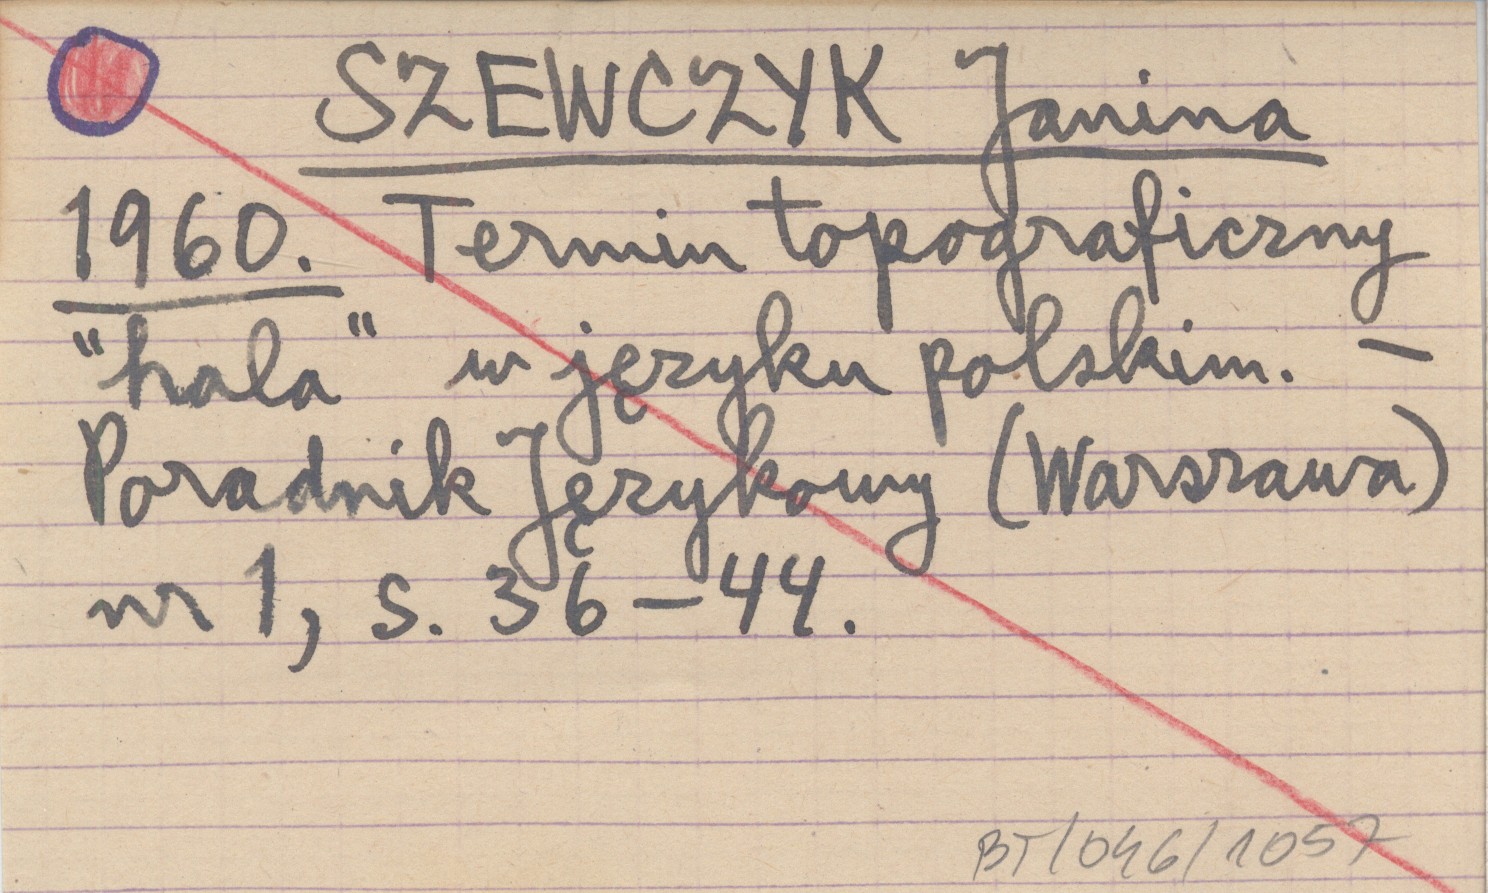 SZEWCZYK Janina
1960. Termin topograficzny
"hala" w języku polskim. –
Poradnik Językowy (Warszawa)
nr 1, s. 36–44.
BT/046/1057